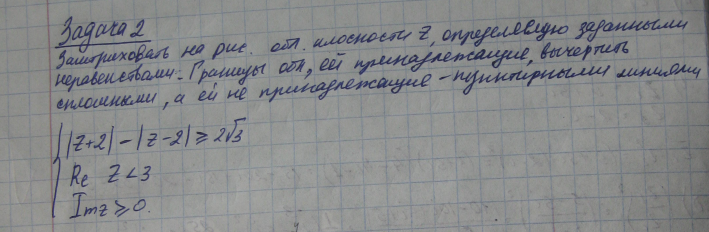 Задача 2
Заштриховать на рис. обл. плоскости Z, определяемую заданными
неравенствами. Границы обл, ей принадлежащие, вычертить
сплошными, а ей не принадлежащие - пунктирными линиями
|z+2| - |z-2| ≥ 2√3
Re Z < 3
Im z ≥ 0.